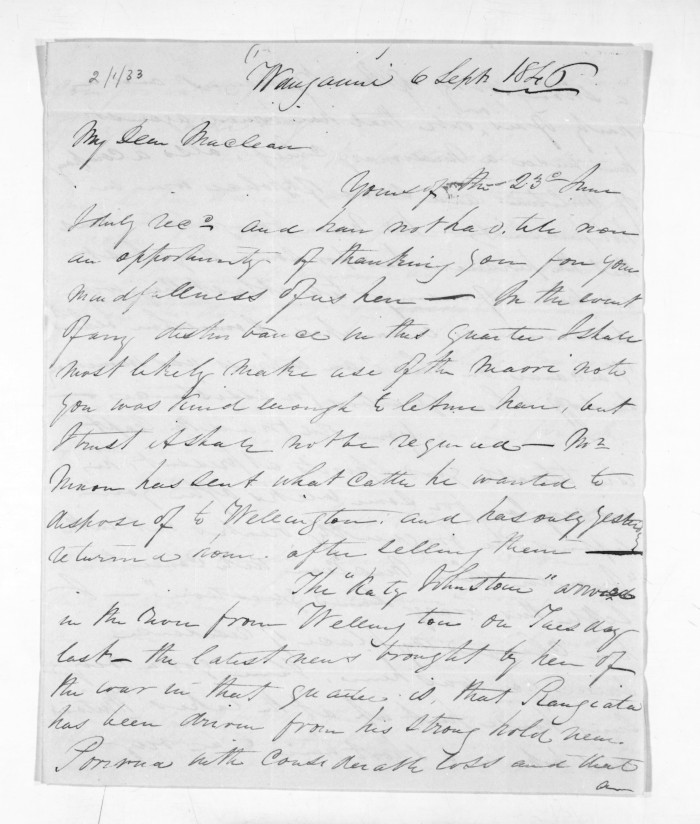 2/1/33
Wanganui 6 Sept 1846
My Dear Maclean
Yours of the 23d June
I duly recd and have not had, till now
an opportunity of thanking you for your
mindfullness of us here — In the event
of any disturbance in this quarter I shall
most likely make use of the Maori note
you was kind enough to let me have, but
I trust it shall not be required — Mr
Nixon has sent what cattle he wanted to
dispose of to Wellington; and has only yesterday
returned home after selling them —
The "Katy Johnstone" arrived
in the river from Wellington on Tuesday
last — the latest news brought by her of
the war in that quarter is, that Rangiata
has been driven from his strong hold near
Porirua with considerable loss and that
an